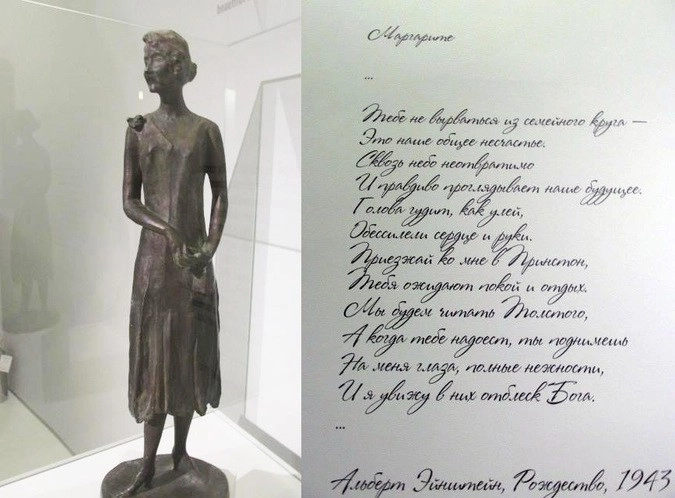 Маргарите
...
Тебе не вырваться из семейного круга —
Это наше общее несчастье.
Сквозь небо неотвратимо
И правдиво проглядывает наше будущее.
Голова гудит, как улей,
Обессилели сердце и руки.
Приезжай ко мне в Принстон,
Тебя ожидают покой и отдых.
Мы будем читать Толстого,
А когда тебе надоест, ты поднимешь
На меня глаза, полные нежности,
И я увижу в них отблеск Бога.
...
Альберт Эйнштейн, Рождество, 1943